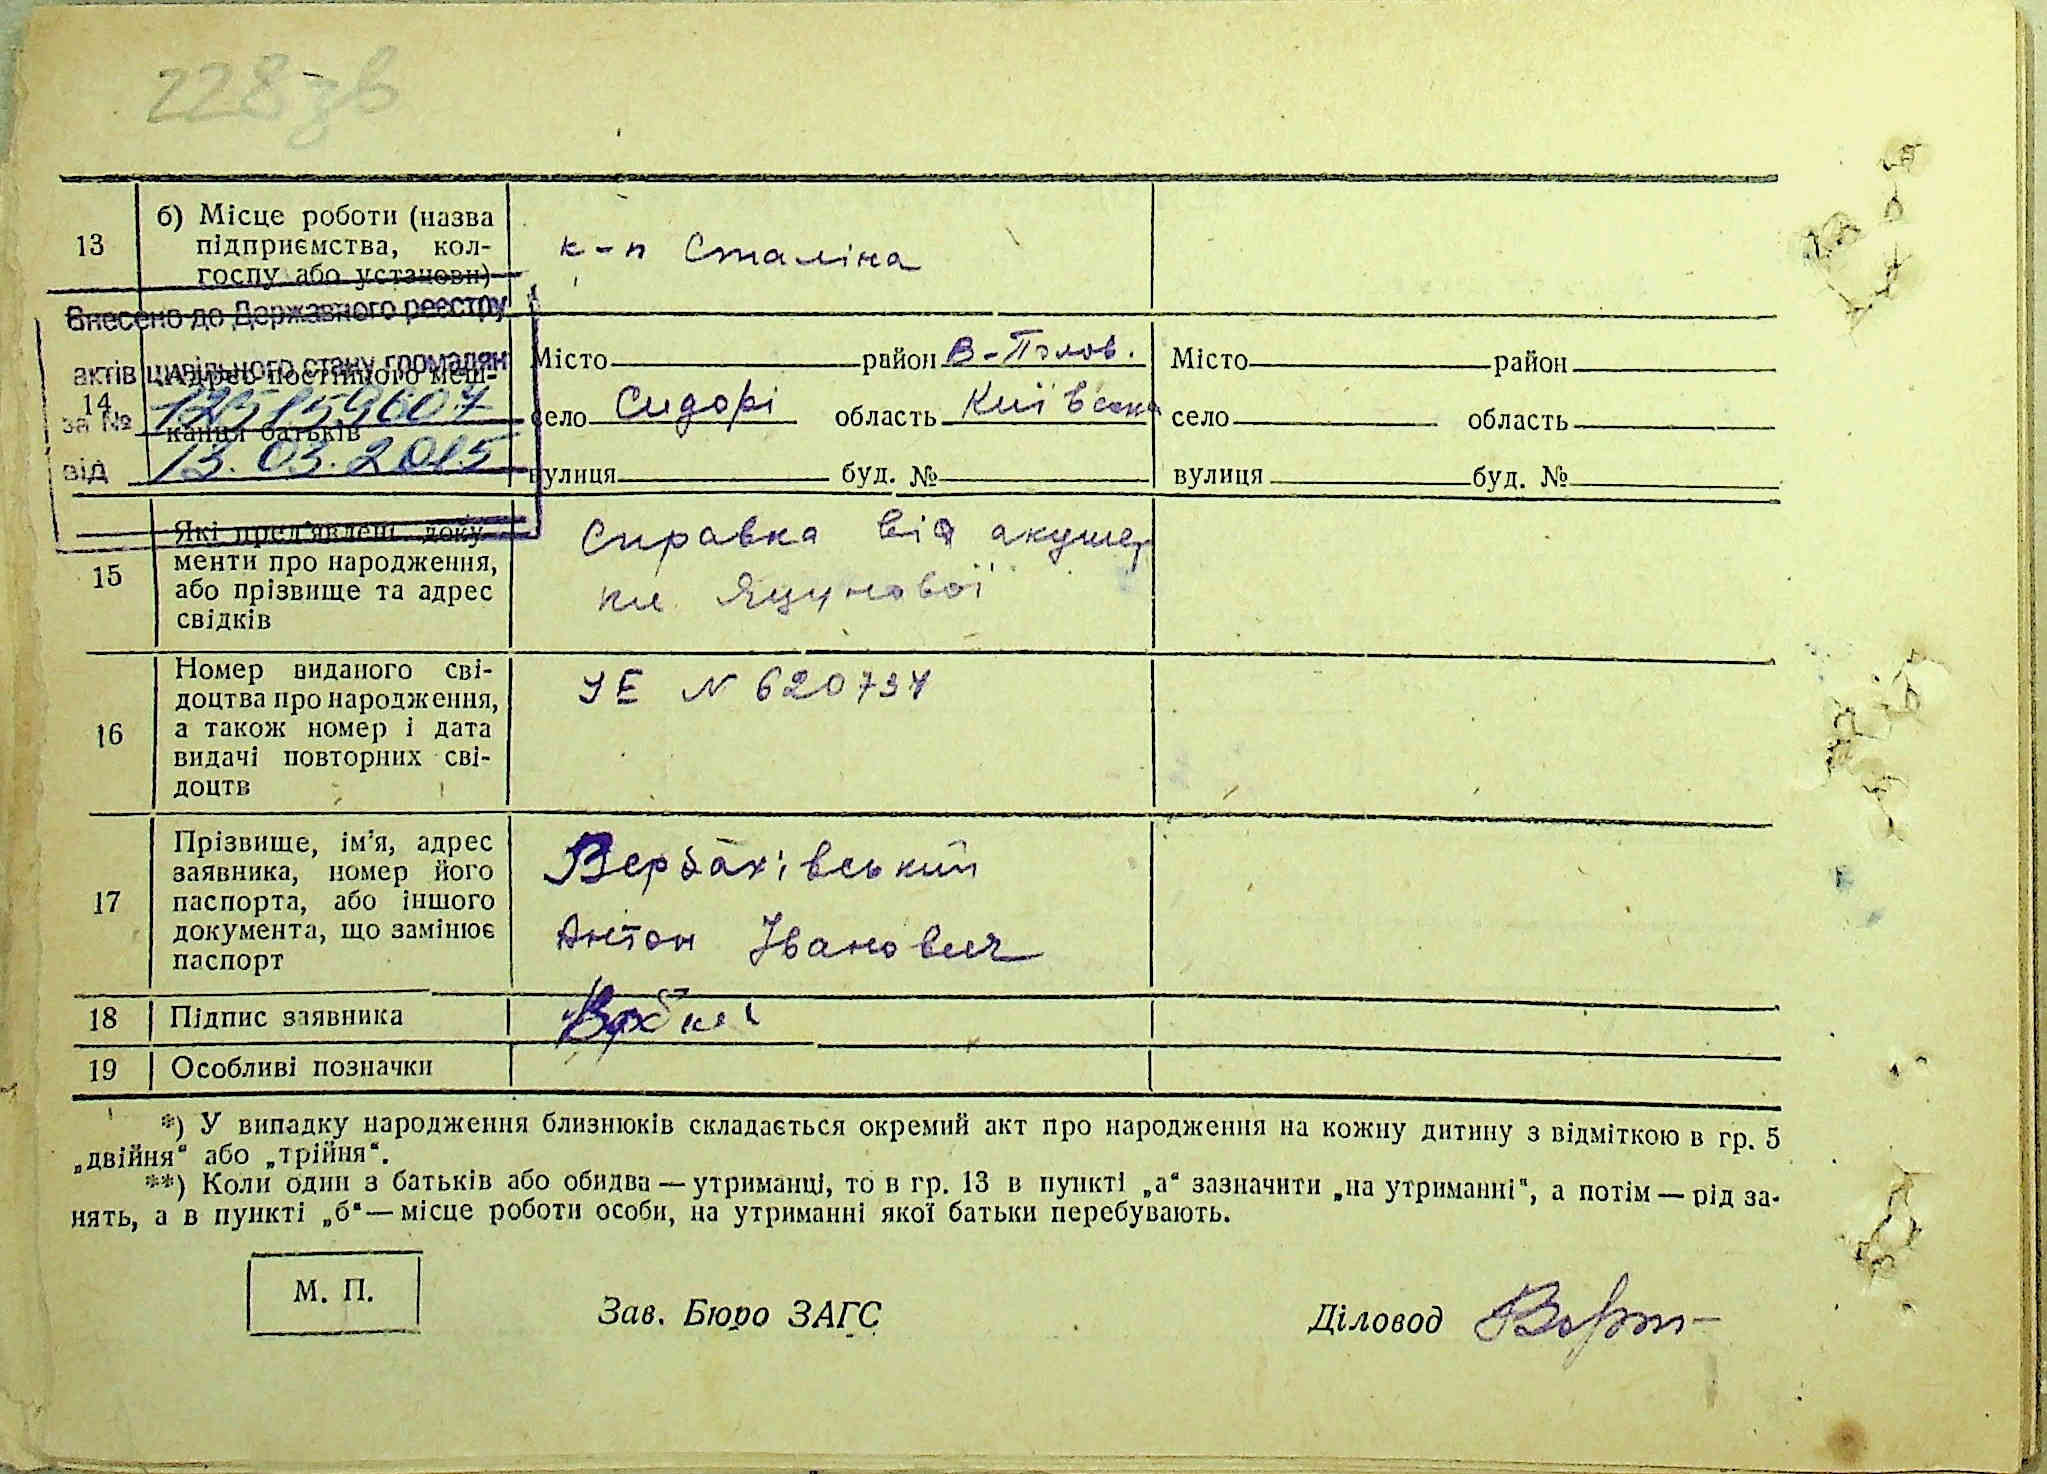 228зв
13
б) Місце роботи (назва
підприємства, кол-
госпу або установи)
к-п Сталіна
Внесено до Державного реєстру
актів цивільного стану громадян
за № 12515960
від 13.03.2015
14
Адрес постійного меш-
кання батьків
Місто район В-Полов.
село Сидорі область Київська
вулиця буд. №
Місто район
село область
вулиця буд. №
15
Які пред'явлені доку-
менти про народження,
або прізвище та адрес
свідків
Справка від акушер
ки Яцунової
16
Номер виданого сві-
доцтва про народження,
а також номер і дата
видачі повторних сві-
доцтв
УЕ N 620734
17
Прізвище, ім'я, адрес
заявника, номер його
паспорта, або іншого
документа, що замінює
паспорт
Вербахівський
Антон Іванович
18
Підпис заявника
19
Особливі позначки
*) У випадку народження близнюків складається окремий акт про народження на кожну дитину з відміткою в гр. 5
„двійня“ або „трійня“.
**) Коли один з батьків або обидва — утриманці, то в гр. 13 в пункті „а“ зазначити „на утриманні“, а потім — рід за-
нять, а в пункті „б“ — місце роботи особи, на утриманні якої батьки перебувають.
М. П.
Зав. Бюро ЗАГС
Діловод